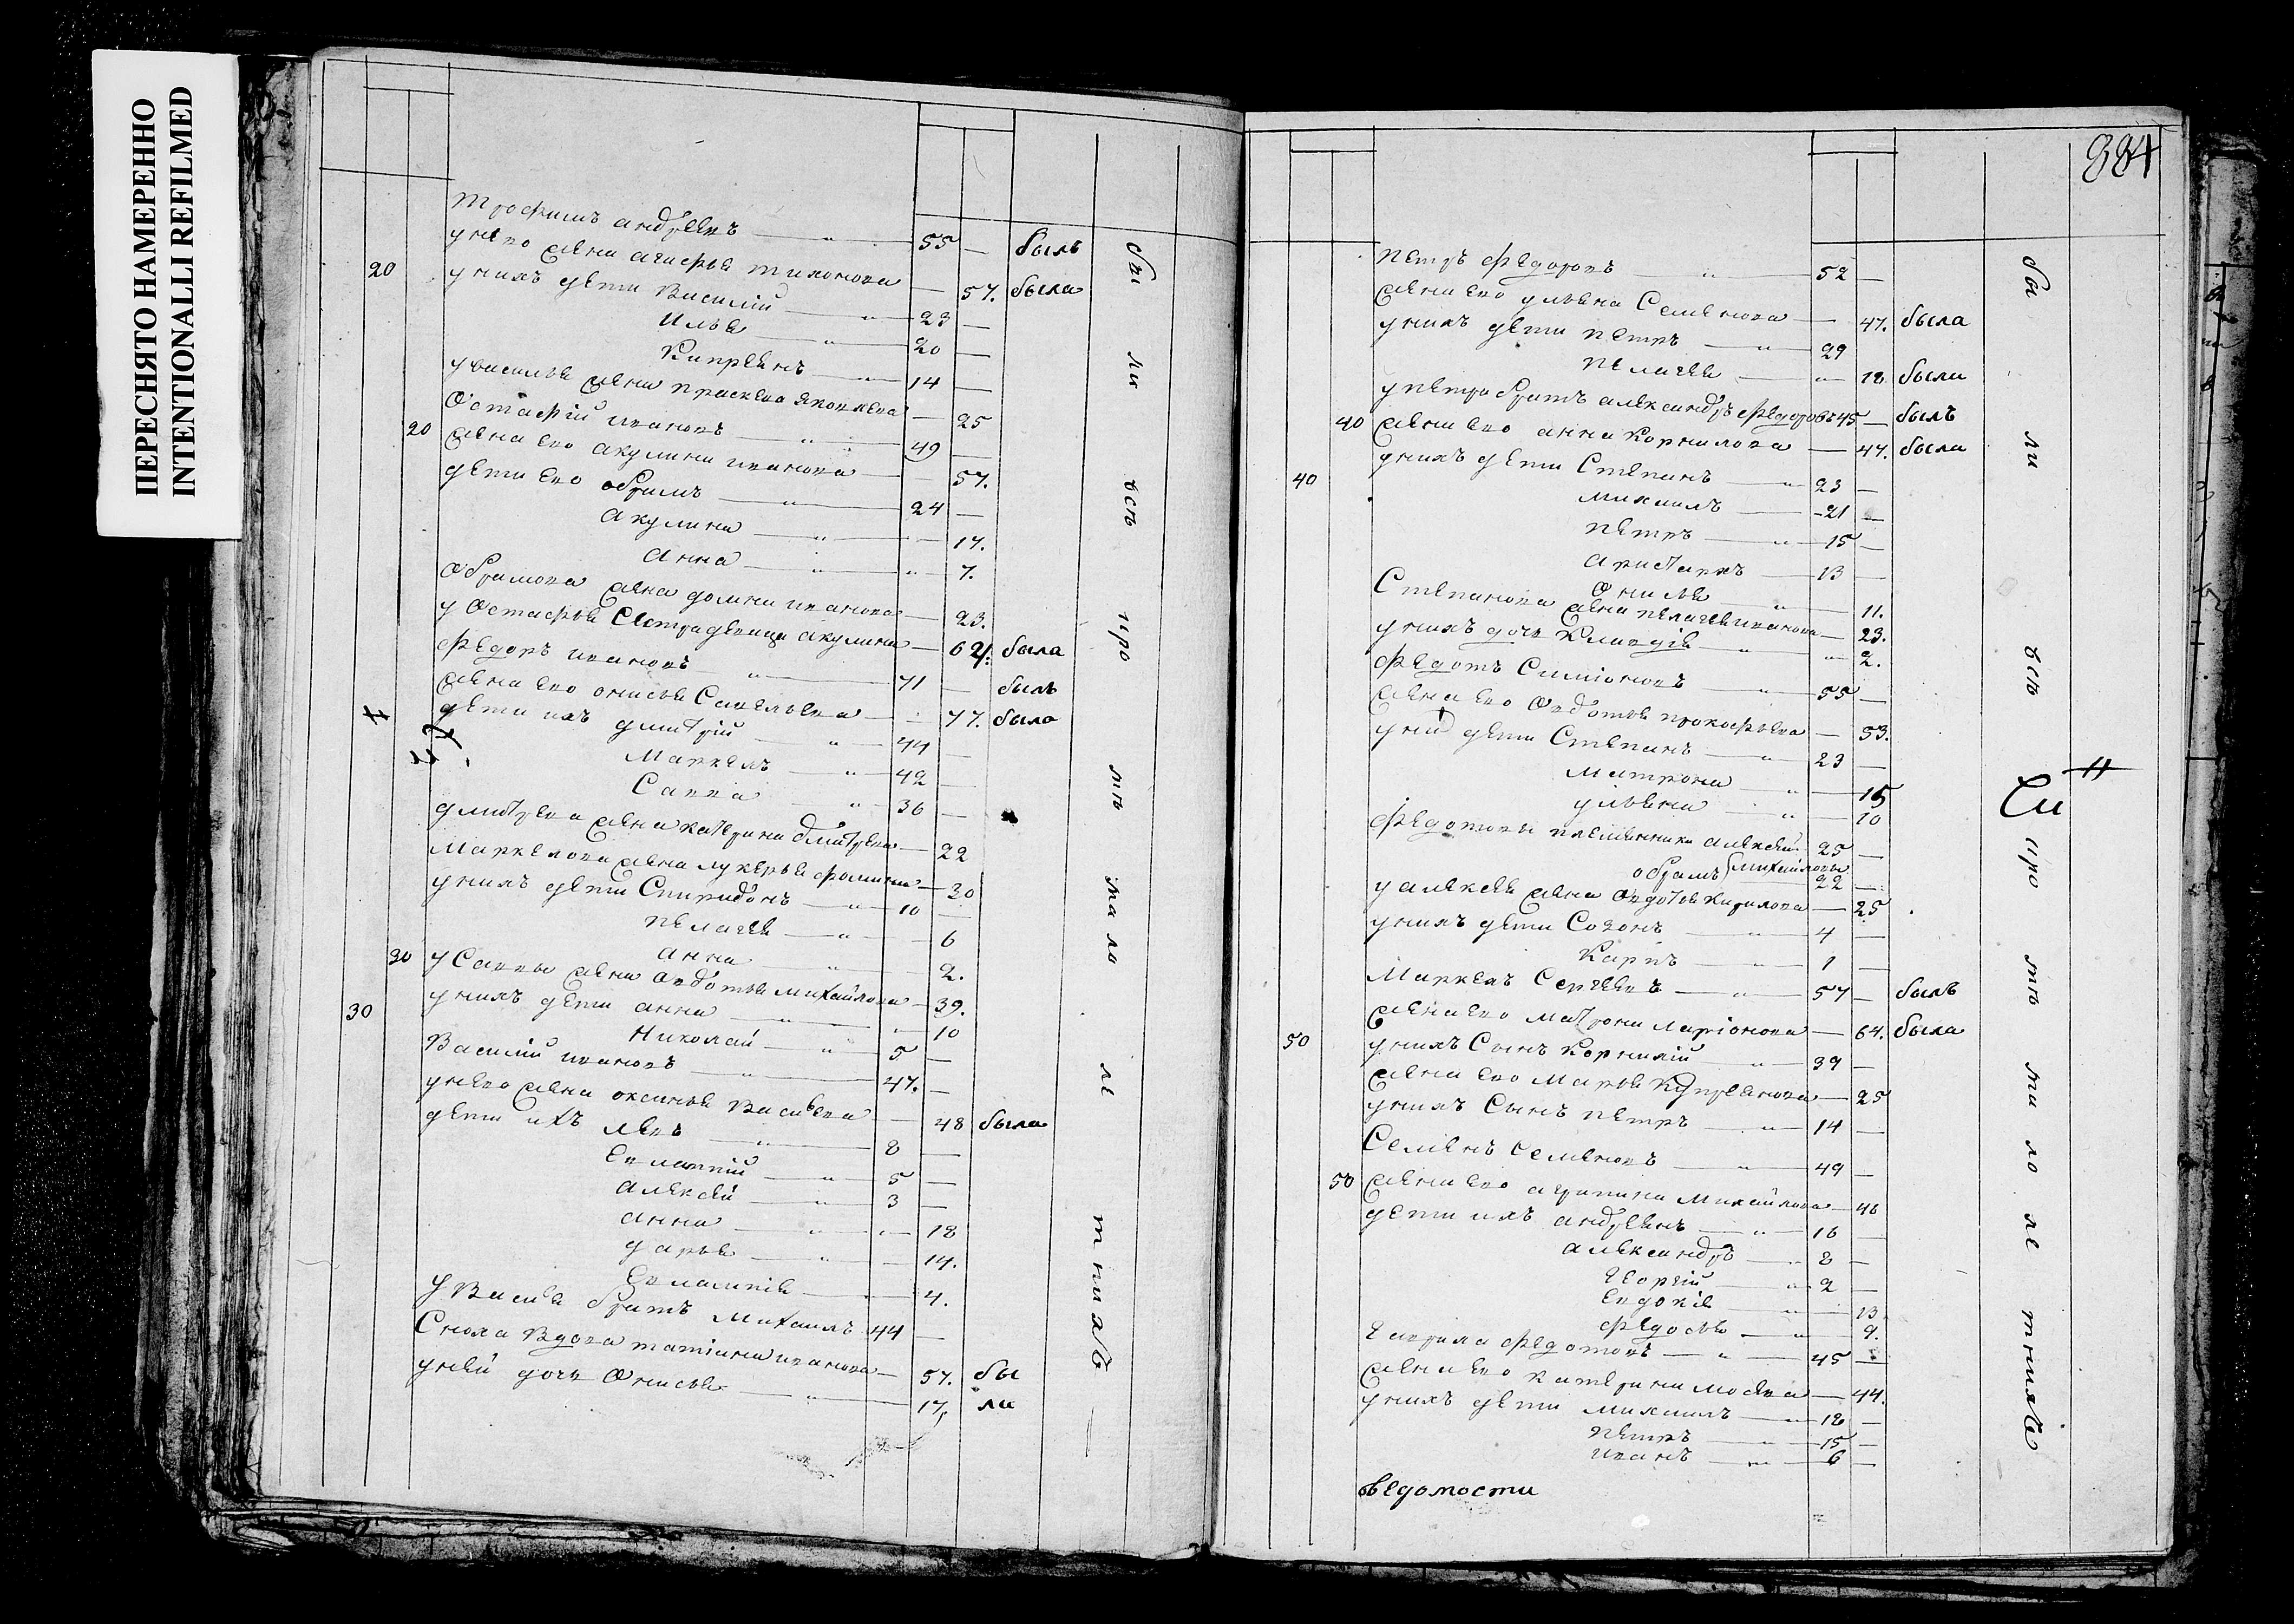 ПЕРЕСНЯТО НАМЕРЕННО
INTENTIONALLI REFILMED
Трофимъ андреевъ 55 былъ
у него жена агафья тихонова 57. была
20 у нихъ дети Василий 23
Илья 20
Киприянъ 14
у василья жена прасковья яковлева 25
Остафий ивановъ 49
20 жена ево акулина иванова 57.
дети ево абрамъ 24
акулина 17.
анна 7.
Абрамова жена домна иванова 23.
у Остафья Сестра девица акулина 64. была
Федоръ ивановъ 71 былъ
жена ево онисья Савельева 77. была
дети ихъ дмитрий 44
Маркелъ 42
Савва 36
дмитрева жена катерина дмитрева 22
Маркелова жена лукерья фомина 30
у нихъ дети Спиридонъ 10
пелагея 6
анна 2.
30 у Саввы жена авдотья михайлова 39.
30 у нихъ дети анна 10
Николай 5
Василий ивановъ 47.
у него жена оксинья Васильева 48 была
дети ихъ левъ 8
Евлампий 5
алексей 3
анна 18
дарья 14.
Евлампия 4.
У Василья братъ Михаилъ 44
Сноха Вдова татиана иванова 57. бы
у ней дочь Онисья 17. ли
бы ли всѣ про тѣ ма ло ле тнихъ
884
петръ федоровъ 52
жена ево ульяна Семенова 47. была
у нихъ дети петръ 29
пелагея 18 была
у петра братъ александръ федоровъ 45 былъ
40 жена ево анна корнилова 47. была
40 у нихъ дети Степанъ 23
михаилъ 21
петръ 15
аристархъ 13
Онисья 11.
Степанова жена пелагея иванова 23.
у нихъ дочь Клавдия 2.
Федотъ Симионовъ 55
жена ево Овдотья прокофьева 53.
у них дети Степанъ 23
матрона 15
ульяна 10
Федотовы племянники алексей 25
абрамъ Михайловы 22
у алексея жена Овдотья кирилова 25
у нихъ дети Созонъ 4
Карпъ 1
Маркелъ Сергеевъ 57 былъ
жена ево матрона ларионова 64. была
50 у нихъ Сынъ Корнилий 39
жена ево Марья Куприянова 25
у нихъ Сынъ петръ 14
Семенъ Семеновъ 49
50 жена ево агрипина Михайлова 46
дети ихъ андреянъ 16
александръ 8
Георгий 2
Евдокия 13
федосья 9.
Гаврила федотовъ 45
жена ево катерина мосева 44.
у нихъ дети михаилъ 18
петръ 15
иванъ 6
ведомости
бы ли всѣ про тѣ ма ло ле тнихъ